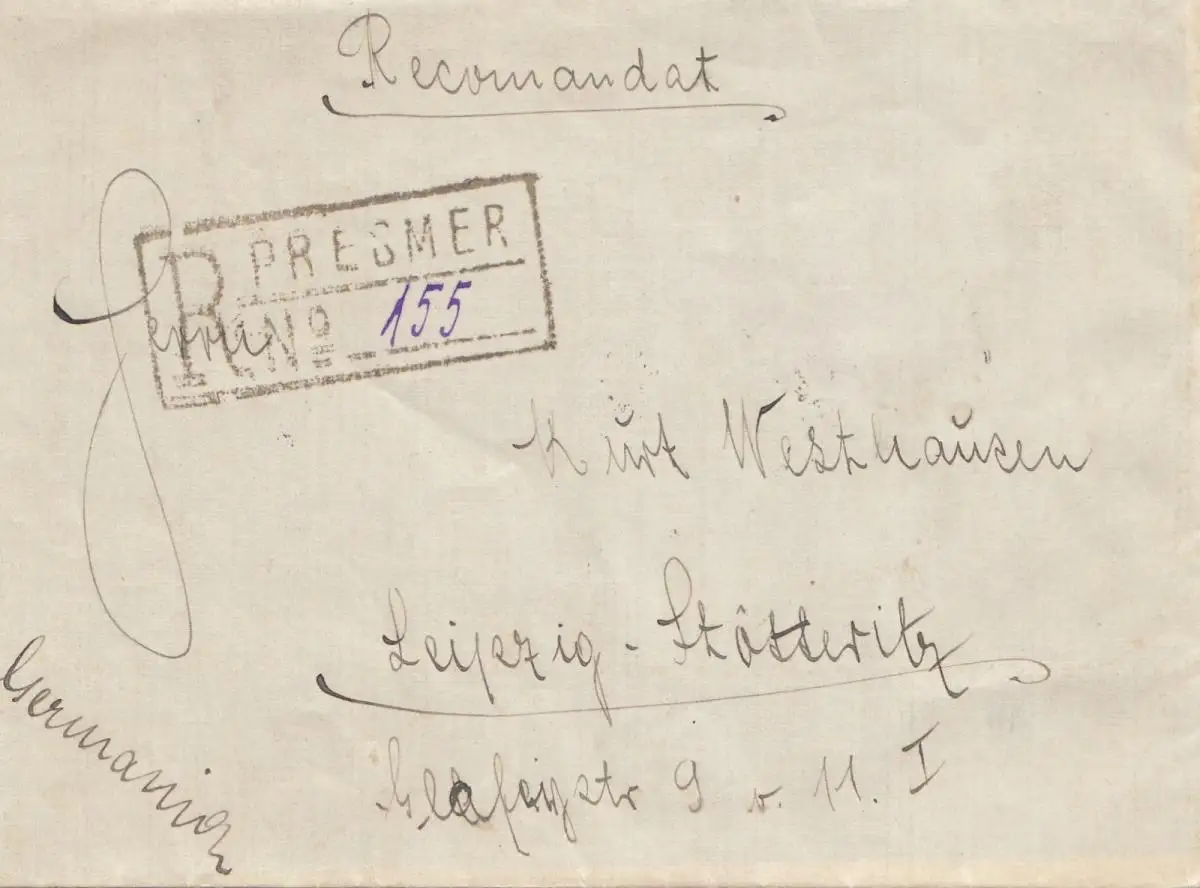 Recomandat
R PRESMER
No 155
Herrn
Kurt Westhausen
Leipzig - Stötteritz
9 v. 11. I
Germania